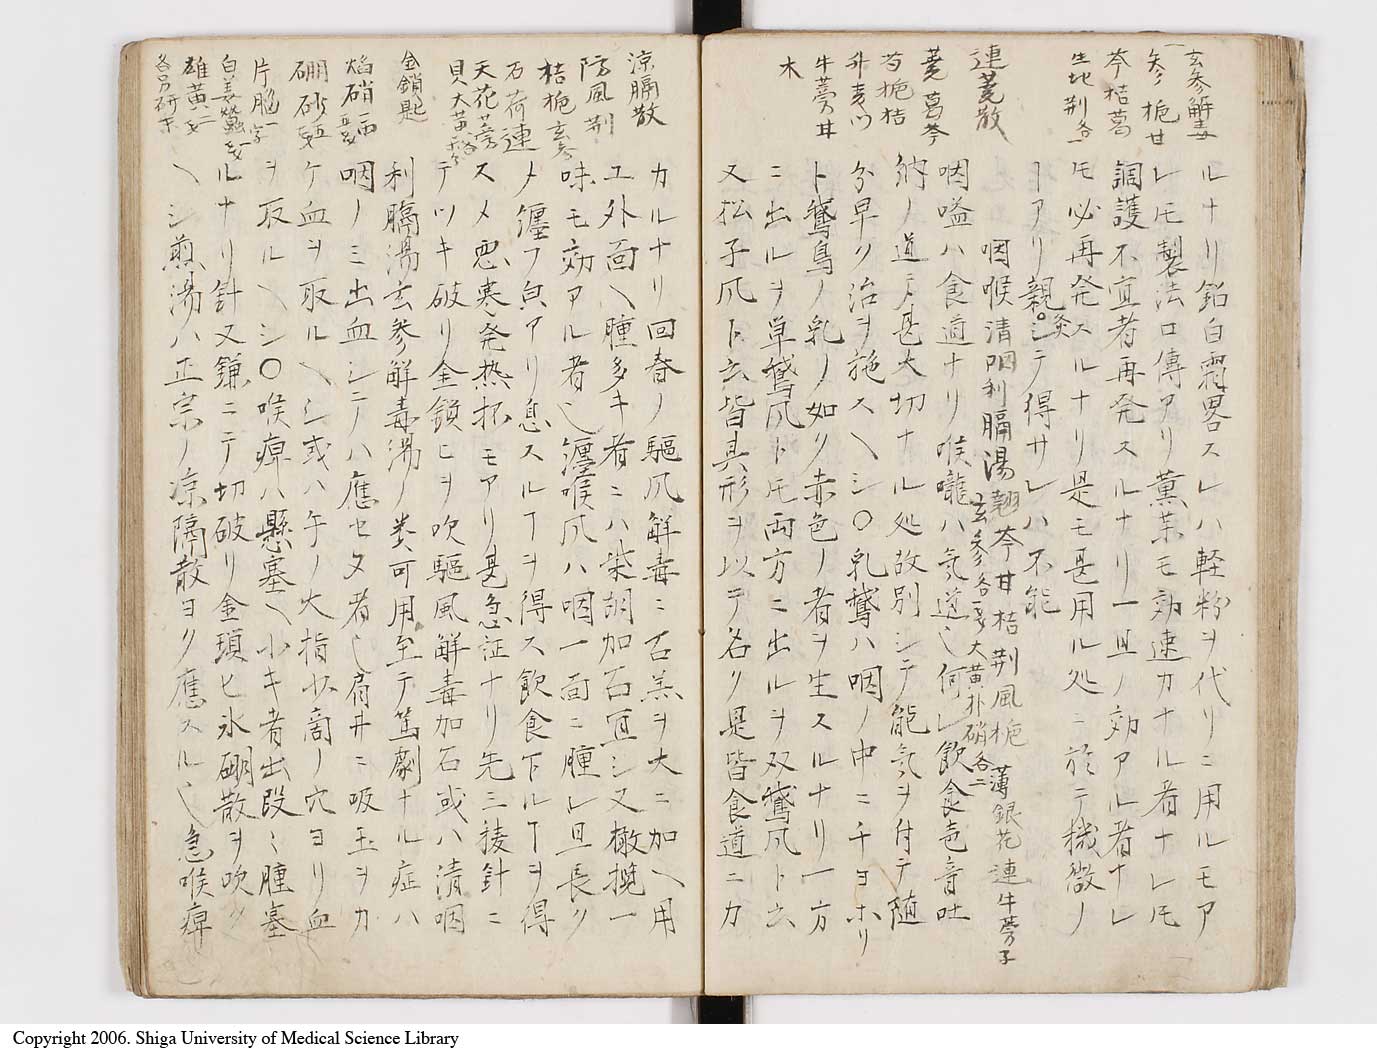 玄参解毒
参梔甘
芩桔葛
生地荆各一
連翹散
翹葛芩
芍梔桔
升麦门
牛蒡甘
木
ルナリ鉛白霜畧スレハ軽粉ヲ代リニ用ルモア
レ𪜈製法口傳アリ薫薬モ効速カナル者ナレ𪜈
調護不宜者再発スルナリ一旦ノ効アル者ナレ
𪜈必再発スルナリ是モ甚用ル処ニ於テ機微ノ
ヿアリ親炙シテ得サレハ不能
咽喉 清咽利膈湯 翹芩甘桔荆風梔薄銀花連牛蒡子
玄参各 大黄朴硝各二
咽嗌ハ食道ナリ喉嚨ハ気道也何レ飲食声音吐
納ノ道ニテ甚大切ナル処故別シテ能気ヲ付テ随
分早ク治ヲ施スヘシ〇乳鵞ハ咽ノ中ニチヨホリ
ト鵞鳥ノ乳ノ如ク赤色ノ者ヲ生スルナリ一方
ニ出ルヲ単鵞风ト𪜈両方ニ出ルヲ双鵞风ト云
又松子风ト云皆其形ヲ以テ名ク是皆食道ニカ
涼膈散
防風荆
桔梔玄参
石荷連
天花蒡
貝大黄
金鎖匙
焔硝一两
硼砂
片脳一字
白姜蠶一
雄黄二
各另研末
カルナリ回春ノ驅风解毒ニ石羔ヲ大ニ加ヘ用
ユ外面ヘ腫多キ者ニハ柴胡加石宜シ又橄欖一
味モ効アル者也纏喉风ハ咽一面ニ腫レ且長ク
メ纏フ㒵アリ息スルヿヲ得ス飲食下ルヿヲ得
スメ悪寒発热抔モアリ甚急証ナリ先三稜針ニ
テツキ破リ金鎖匕ヲ吹驅風解毒加石或ハ清咽
利膈湯玄参解毒湯ノ类可用至テ篤劇ナル症ハ
咽ノミ出血シテハ應セヌ者也肩井ニ吸玉ヲカ
ケ血ヲ取ルヘシ或ハ午ノ大指少商ノ穴ヨリ血
ヲ取ルヘシ〇喉痺ハ懸塞ヘ小キ者出段ミ腫塞
ルナリ針又鎌ニテ切破リ金鎖匕氷硼散ヲ吹ク
ヘシ煎湯ハ正宗ノ涼隔散ヨク應スル也急喉痺
Copyright 2006. Shiga University of Medical Science Library